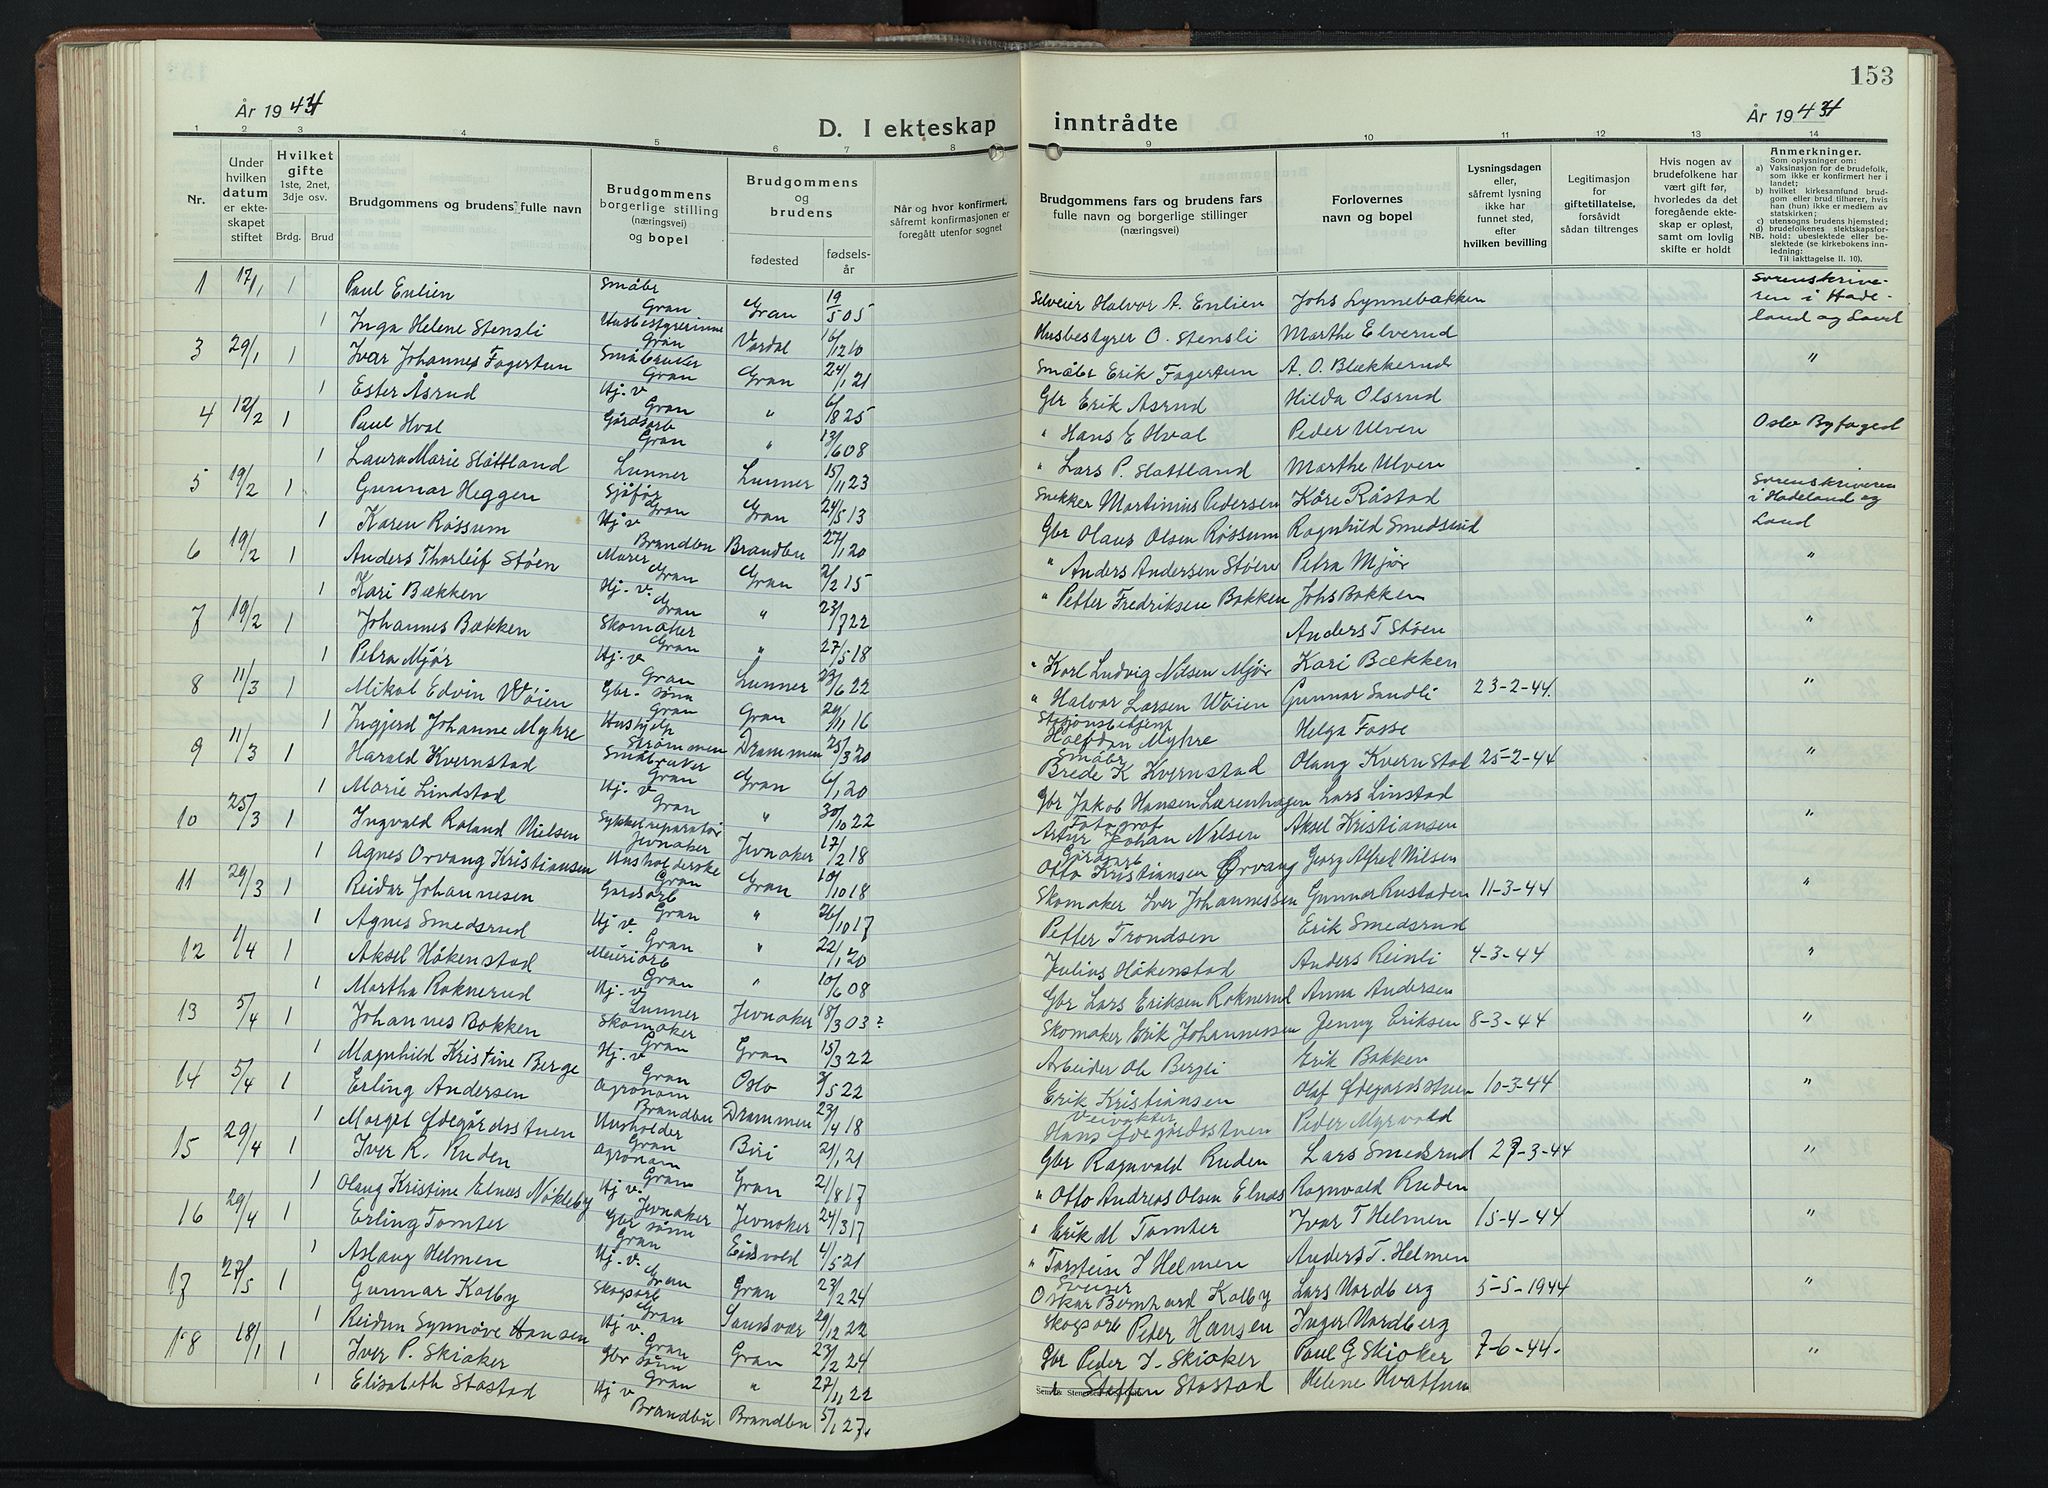 153
År 1944
D. I ekteskap inntrådte
År 1944
1 2 3 4 5 6 7 8 9 10 11 12 13 14
Nr.
Under hvilken datum er ekteskapet stiftet
Hvilket gifte 1ste, 2net, 3dje osv.
Brdg. Brud
Brudgommens og brudens fulle navn
Brudgommens borgerlige stilling (næringsvei) og bopel
Brudgommens og brudens
fødested
fødselsår
Når og hvor konfirmert, såfremt konfirmasjonen er foregått utenfor sognet
Brudgommens fars og brudens fars fulle navn og borgerlige stillinger (næringsvei)
Forlovernes navn og bopel
Lysningsdagen eller, såfremt lysning ikke har funnet sted, efter hvilken bevilling
Legitimasjon for giftetillatelse, forsåvidt sådan tiltrenges
Hvis nogen av brudefolkene har vært gift før, hvorledes da det foregående ekteskap er opløst, samt om lovlig skifte er holdt
Anmerkninger.
Som oplysninger om:
a) Vaksinasjon for de brudefolk, som ikke er konfirmert her i landet;
b) hvilket kirkesamfund brudgom eller brud tilhører, hvis han (hun) ikke er medlem av statskirken;
c) utensogns brudens hjemsted;
d) brudefolkenes slektskapsforhold: ubeslektede eller beslektede (se kirkebokens innledning:
NB. Til iakttagelse II. 10).
1 17/1 1 Paul Enlien Småbr Gran Gran 19/5 05 Selveier Halvor A. Enlien Johs Lynnebakken Sorenskriveren i Hadeland og Land
1 Inga Helene Stensli Husbestyrerinne Gran Vardal 16/12 10 Husbestyrer O. Stensli Marthe Elverud
3 29/1 1 Ivar Johannes Fagertun Småbruker Gran Gran 24/1 21 Småbr Erik Fagertun A. O. Blekkerud "
1 Ester Åsrud Hj. v Gran " 6/8 25 Gbr Erik Åsrud Hilda Olsrud
4 12/2 1 Paul Hval Gårdsarb Gran " 13/6 08 " Hans E Hval Peder Ulven Oslo Byfoged
1 Laura Marie Slåttland Lunner Lunner 15/11 23 " Lars P. Slattland Marthe Ulven
5 19/2 1 Gunnar Heggen Sjåfør Gran Gran 24/5 13 Snekker Martinius Pedersen Kåre Råstad Sorenskriveren i Hadeland og Land
1 Karen Røssum Hj v Brandbu Brandbu 27/1 20 Gbr Olaus Olsen Røssum Ragnhild Smedsrud
6 19/2 1 Anders Thorleif Støen Murer Gran Gran 2/2 15 " Anders Andersen Støen Petra Mjør "
1 Kari Bækken Hj. v. Gran " 23/7 22 " Petter Fredriksen Bakken Johs Bakken
7 19/2 1 Johannes Bækken Skomaker Gran " 27/5 18 Anders T Støen "
1 Petra Mjør Hj. v Gran Lunner 23/6 22 " Karl Ludvig Nilsen Mjør Kari Bækken
8 11/3 1 Mikal Edvin Wøien Gbr. sønn Gran Gran 29/11 16 " Halvor Larsen Wøien Gunnar Sandli 23-2-44. "
1 Ingjerd Johanne Myhre Hushjelp Strømmen Drammen 25/3 20 Stasjonsbetjent Halfdan Myhre Helga Fosse
9 11/3 1 Harald Kvernstad Småbruker Gran Gran 6/1 20 Småbr Brede K Kvernstad Olaug Kvernstad 25-2-44 "
1 Marie Lindstad Hj. v Gran " 30/10 22 Gbr Jakob Hansen Lærenhagen Lars Linstad
10 25/3 1 Ingvald Roland Nielsen Sykkelreparatør Jevnaker Jevnaker 17/2 18 Fotograf Artur Johan Nilsen Aksel Kristiansen "
1 Agnes Orvang Kristiansen Husholderske Gran Gran 10/10 18 Gårdsarb Otto Kristiansen Ørvang Georg Alfred Nilsen
11 29/3 1 Reidar Johannesen Gardsarb Gran " 26/10 17 Skomaker Iver Johannessen Gunnar Rustaden 11-3-44 "
1 Agnes Smedsrud Hj. v. Gran " 22/1 20 Petter Trondsen Erik Smedsrud
12 1/4 1 Aksel Håkenstad Meieriarb Gran " 10/6 08 Julius Håkenstad Anders Reinli 4-3-44 "
1 Martha Raknerud Hj. v Lunner Jevnaker 18/3 03? Gbr Lars Eriksen Raknerud Anna Andersen
13 5/4 1 Johannes Bakken Skomaker Gran Gran 15/3 22 Skomaker Erik Johannessen Jenny Eriksen 8-3-44 "
1 Magnhild Kristine Berge Hj. v Gran Oslo /5 22 Arbeider Ole Bergli Erik Bakken
14 5/4 1 Erling Andersen Agronom Brandbu Drammen 23/4 18 Erik Kristiansen Olaf Ødegårdsstuen 10-3-44 "
1 Marget Ødegårdsstuen Husholder Gran Biri 21/1 21 Veivokter Hans Ødegårdsstuen Peder Myrvold
15 29/4 1 Iver R. Ruden Agronom Gran Gran 21/8 17 Gbr Ragnvald Ruden Lars Smedsrud 27-3-44 "
1 Olaug Kristine Elnes Nøkleby Hj v. Jevnaker Jevnaker 24/3 17 " Otto Andreas Olsen Elnæs Ragnvald Ruden
16 29/4 1 Erling Tomter Gbr sønn Gran Eidsvold 4/5 21 " Erik M Tomter Ivar T Helmen 15-4-44 "
1 Aslaug Helmen Hj. v. Gran Gran 23/2 24 " Torstein I Helmen Anders T. Helmen
17 27/5 1 Gunnar Kalby Skogsarb Gran Sandsvær 29/12 22 Sveiser Oskar Bernhard Kalby Lars Nordberg 5-5-1944 "
1 Reidun Synnøve Hansen Hj v. Gran Gran 23/2 24 Skogsarb Peter Hansen Inger Nordberg
18 18/1 1 Iver P. Skiaker Gbr sønn Gran " 27/11 22 Gbr Peder I. Skiaker Paul G Skiaker 7-6-44. "
1 Elisabeth Stastad Hj v Brandbu Brandbu 5/1 27. " Steffen Stastad Helene Hvattum